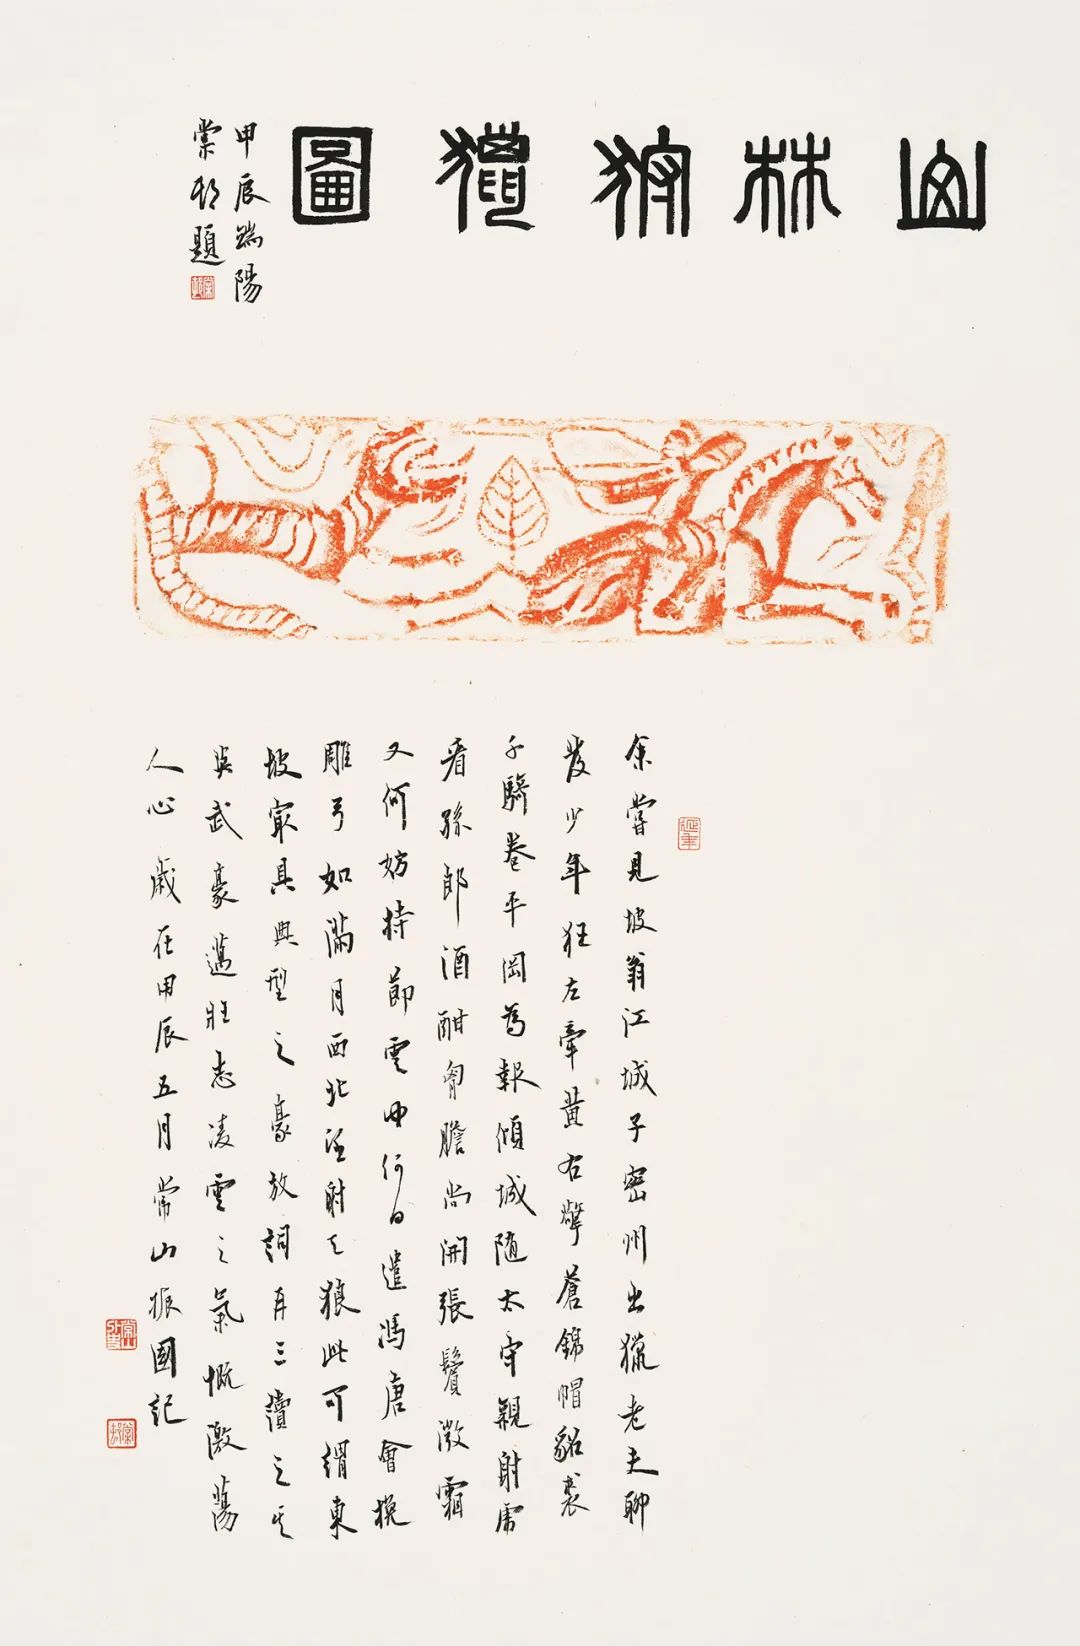 山林狩獵圖
甲辰端陽
棠邨題
棠邨
延年
余嘗見坡翁江城子密州出獵老夫聊
發少年狂左牽黃右擎蒼錦帽貂裘
千騎卷平岡為報傾城隨太守親射虎
看孫郎酒酣胷膽尚開張鬢微霜
又何妨持節雲中何日遣馮唐會挽
雕弓如滿月西北望射天狼此可謂東
坡寂具典型之豪放詞再三讀之其
英武豪邁壯志凌雲之氣慨激蕩
人心 歲在甲辰五月常山振國記
棠邨